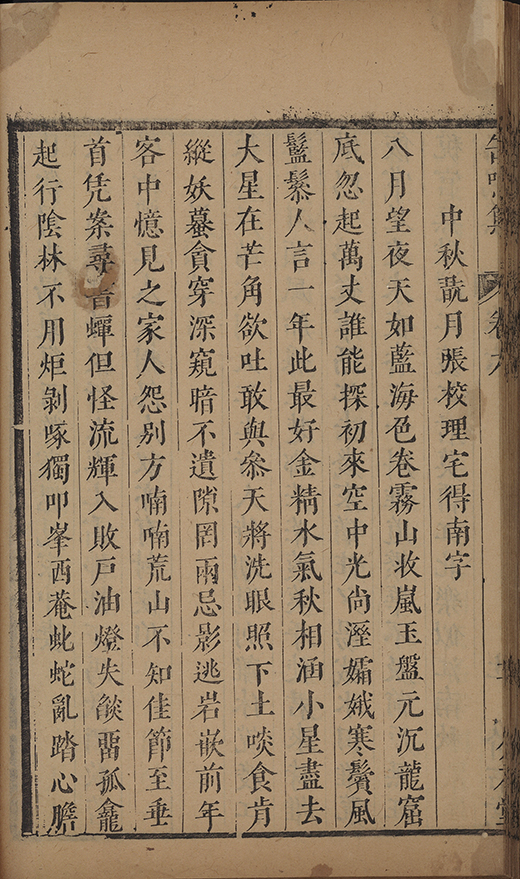 卷六
中秋翫月張校理宅得南字
八月望夜天如藍海色卷霧山收嵐玉盤元沉龍窟
底忽起萬丈誰能探初來空中光尚溼孀娥寒鬢風
䰐鬖人言一年此最好金精水氣秋相涵小星盡去
大星在芒角欲吐敢與叅天將洗眼照下土啖食肯
縱妖蟇貪穿深窺暗不遺隙罔兩忌影逃岩嵌前年
客中憶見之家人怨别方喃喃荒山不知佳節至垂
首凭案尋書蟫但怪流輝入敗戶油燈失燄畱孤龕
起行陰林不用炬剝啄獨叩峯西菴虵蛇亂踏心膽